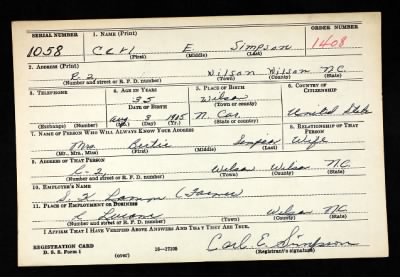 SERIAL NUMBER 1. NAME (Print) ORDER NUMBER
1058 Carl E. Simpson 1408
(First) (Middle) (Last)
2. ADDRESS (Print)
R-2 Wilson Wilson N.C.
(Number and street or R. F. D. number) (Town) (County) (State)
3. TELEPHONE 4. AGE IN YEARS 5. PLACE OF BIRTH 6. COUNTRY OF CITIZENSHIP
35 Wilson
DATE OF BIRTH (Town or county)
Aug. 3 1905 N. Car. United States
(Exchange) (Number) (Mo.) (Day) (Yr.) (State or country)
7. NAME OF PERSON WHO WILL ALWAYS KNOW YOUR ADDRESS 8. RELATIONSHIP OF THAT PERSON
Mrs. Bertie Simpson Wife
(Mr., Mrs., Miss) (First) (Middle) (Last)
9. ADDRESS OF THAT PERSON
R-2 Wilson Wilson N.C.
(Number and street or R. F. D. number) (Town) (County) (State)
10. EMPLOYER'S NAME
(Farmer)
11. PLACE OF EMPLOYMENT OR BUSINESS
Wilson N.C.
(Number and street or R. F. D. number) (Town) (County) (State)
I AFFIRM THAT I HAVE VERIFIED ABOVE ANSWERS AND THAT THEY ARE TRUE.
REGISTRATION CARD Carl E. Simpson
D. S. S. Form 1 (over) (Registrant's signature)